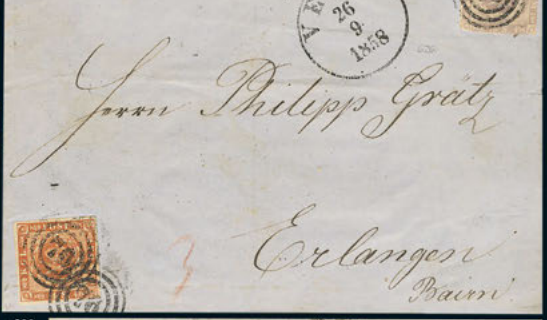 VE
26
9.
1858
Herrn Philipp Grätz
3
Erlangen
Bairn